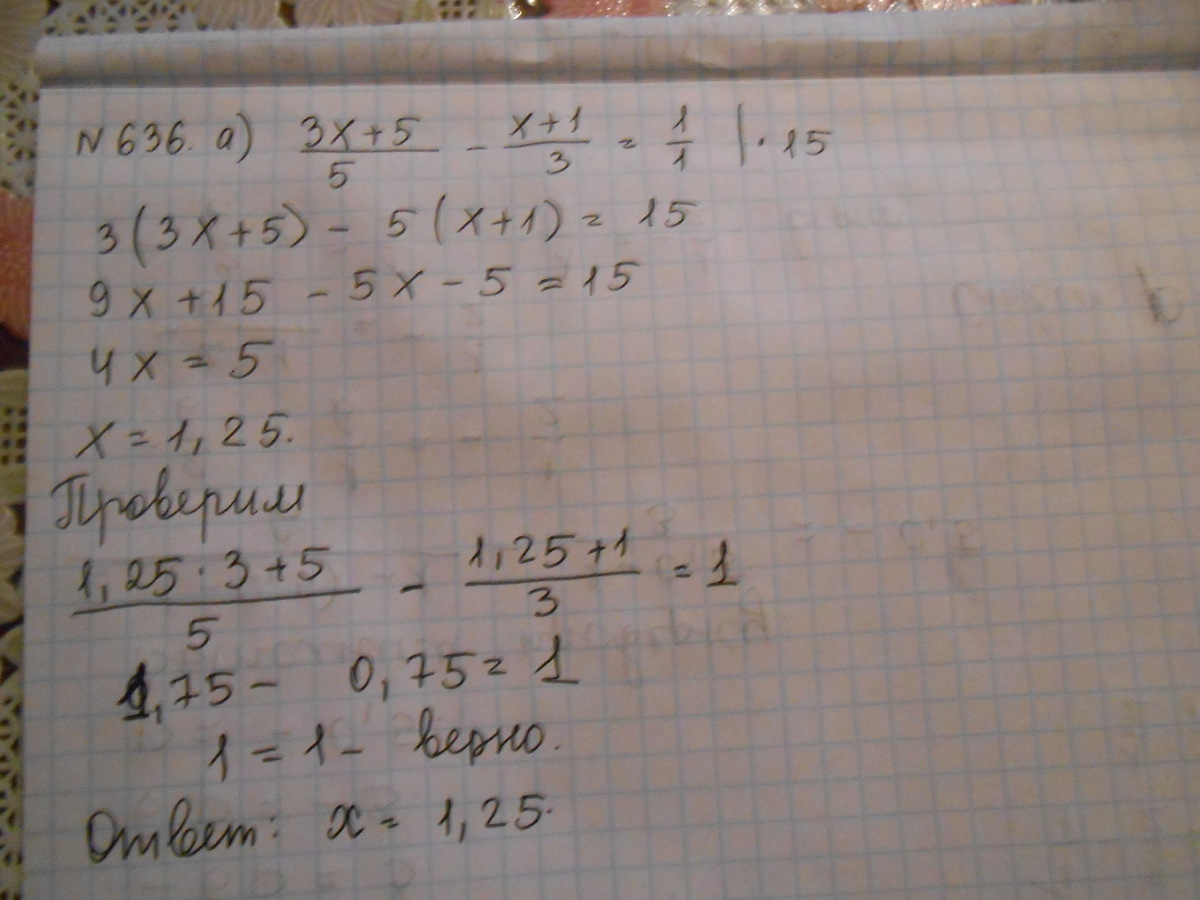 N 636. а) (3x+5)/5 - (x+1)/3 = 1/1 |·15
3(3x+5) - 5(x+1) = 15
9x+15 - 5x - 5 = 15
4x = 5
x = 1,25.
Проверим
(1,25·3+5)/5 - (1,25+1)/3 = 1
1,75 - 0,75 = 1
1 = 1 - верно.
Ответ: x = 1,25.